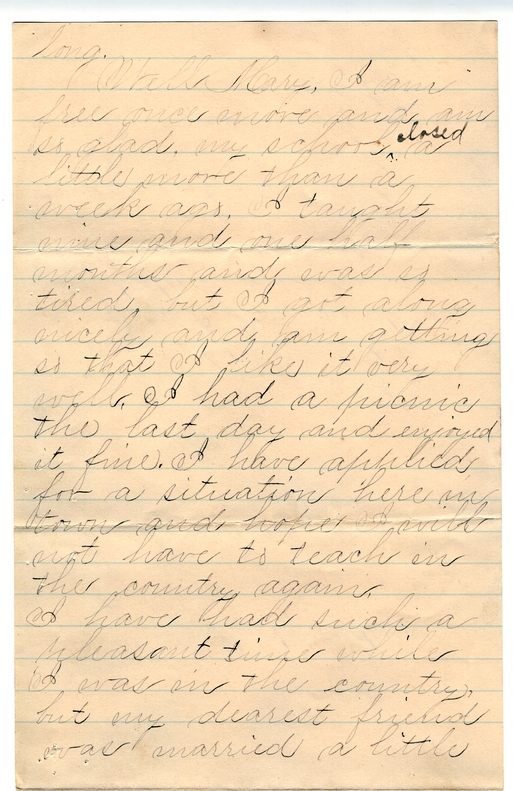 long.
Well Mary, I am
free once more and am
so glad. my school closed a
little more than a
week ago. I taught
nine and one half
months and was so
tired, but I got along
nicely and am getting
so that I like it very
well. I had a picnic
the last day and enjoyed
it fine. I have applied
for a situation here in
town and hope I will
not have to teach in
the country again.
I have had such a
pleasant time while
I was in the country,
but my dearest friend
was married a little